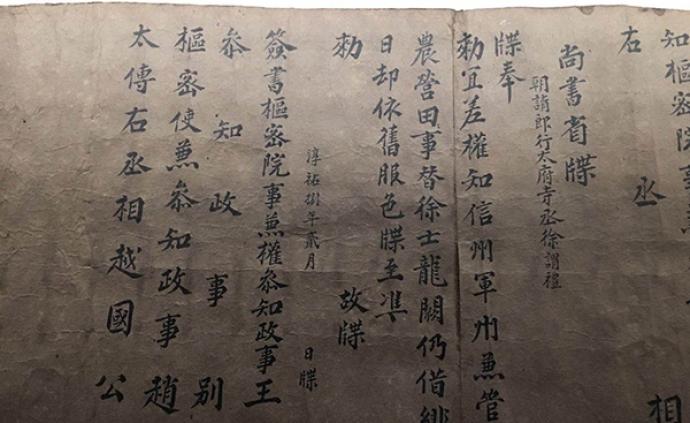 知樞密院事兼
右丞相
尚書省牒
朝請郎行太府寺丞徐謂禮
牒奉
勑宜差權知信州軍州兼管
農營田事替徐士龍闕仍借緋
日却依舊服色牒至準
勑
故牒
淳祐捌年貳月 日牒
簽書樞密院事兼權叅知政事王
叅知政事别
樞密使兼叅知政事趙
太傅右丞相越國公